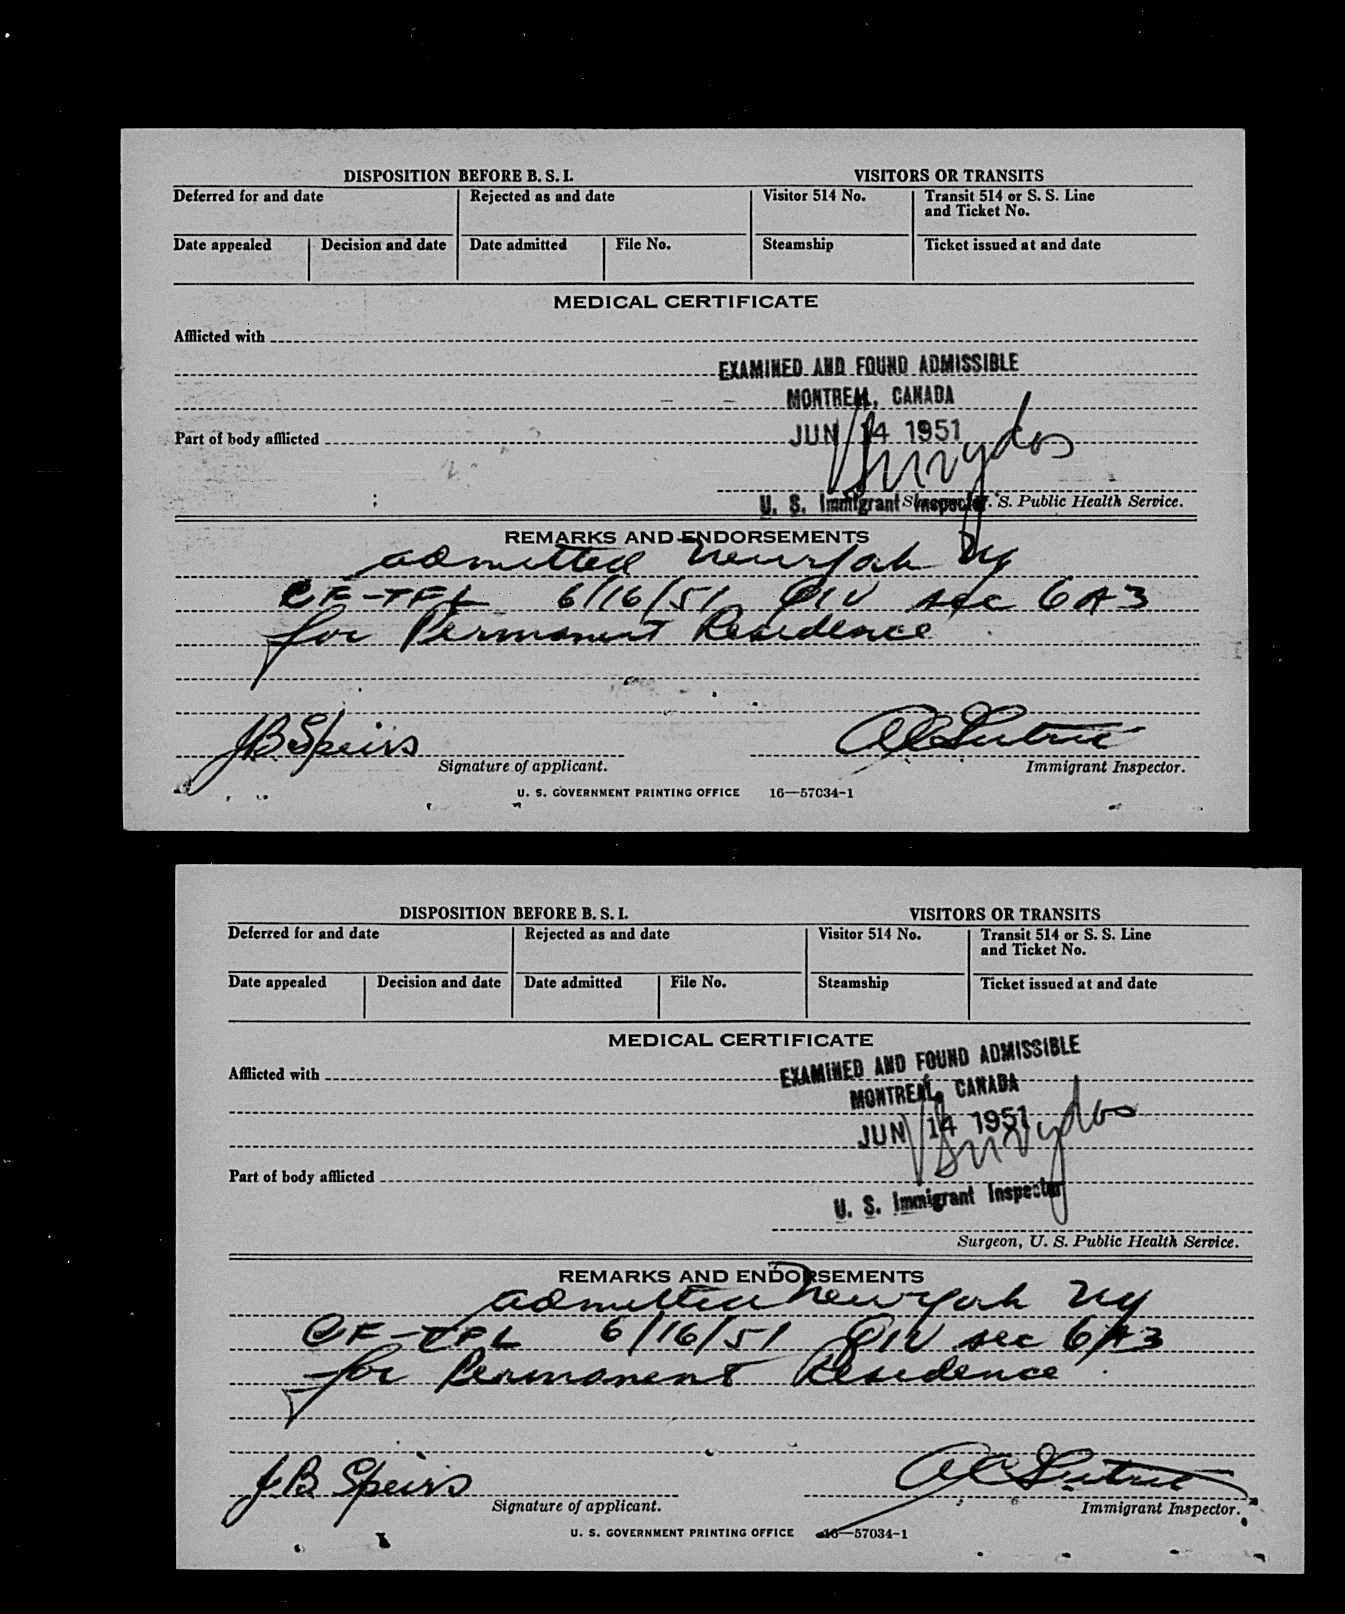 DISPOSITION BEFORE B. S. I. VISITORS OR TRANSITS
Deferred for and date Rejected as and date Visitor 514 No. Transit 514 or S. S. Line
and Ticket No.
Date appealed Decision and date Date admitted File No. Steamship Ticket issued at and date
MEDICAL CERTIFICATE
Afflicted with
EXAMINED AND FOUND ADMISSIBLE
MONTREAL, CANADA
Part of body afflicted JUN 14 1951
U. S. Immigrant Inspector S. Public Health Service.
REMARKS AND ENDORSEMENTS
admitted New York Ny
CF-TFL 6/16/51 QIV sec 6A3
for Permanent Residence
JB Speirs
Signature of applicant. Immigrant Inspector.
U. S. GOVERNMENT PRINTING OFFICE 16—57034-1
DISPOSITION BEFORE B. S. I. VISITORS OR TRANSITS
Deferred for and date Rejected as and date Visitor 514 No. Transit 514 or S. S. Line
and Ticket No.
Date appealed Decision and date Date admitted File No. Steamship Ticket issued at and date
MEDICAL CERTIFICATE
Afflicted with EXAMINED AND FOUND ADMISSIBLE
MONTREAL, CANADA
JUN 14 1951
Part of body afflicted
U. S. Immigrant Inspector
Surgeon, U. S. Public Health Service.
REMARKS AND ENDORSEMENTS
admitted New York Ny
CF-TFL 6/16/51 QIV sec 6A3
for Permanent Residence
JB Speirs
Signature of applicant. Immigrant Inspector.
U. S. GOVERNMENT PRINTING OFFICE 16—57034-1